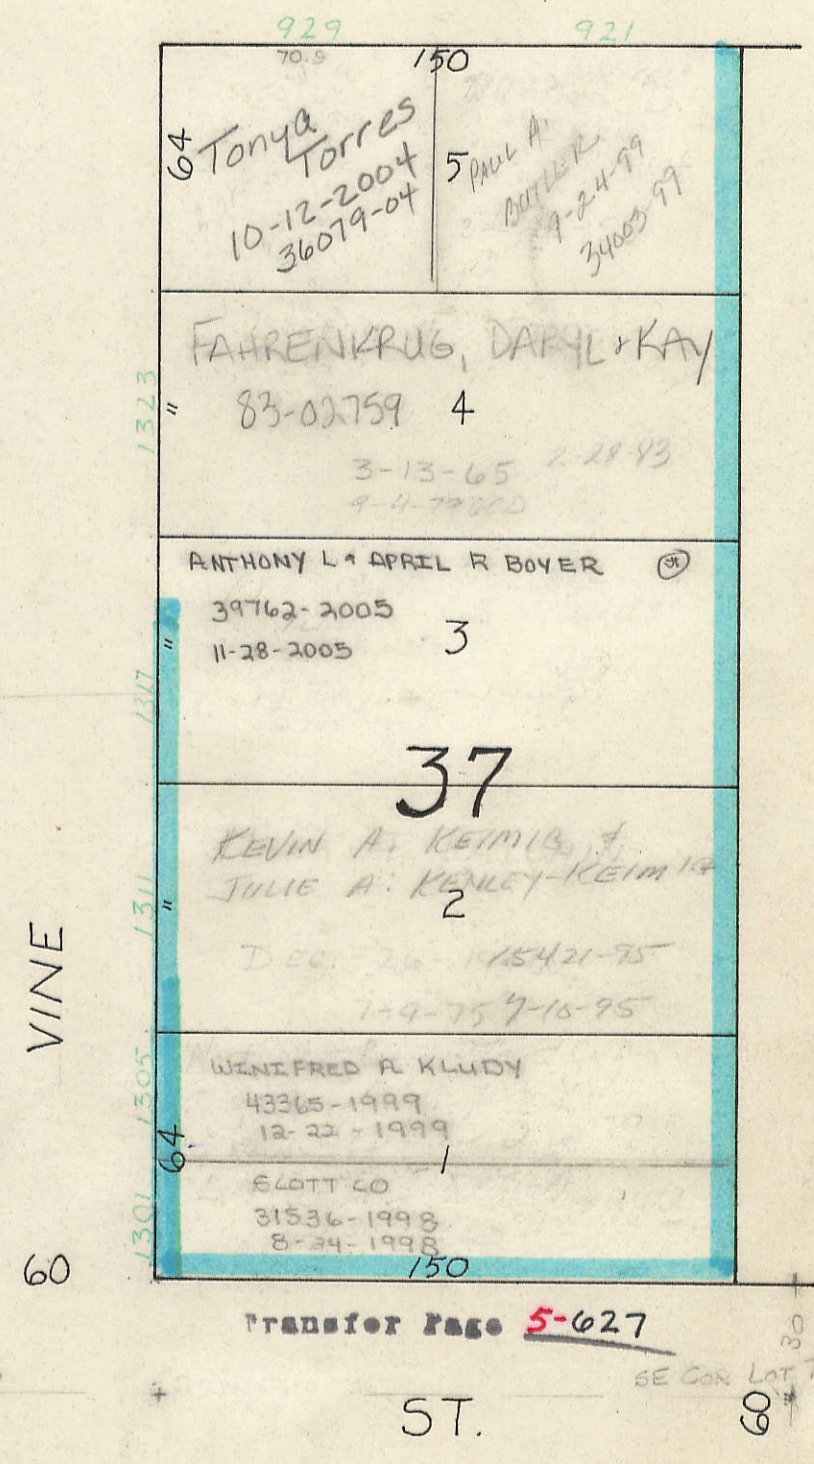 929
921
70.9
150
64
Tonya
Torres
10-12-2004
36079-04
5
PAUL A.
BUTLER
9-24-99
34003-99
FAHRENKRUG, DARYL & KAY
1323
"
83-02759
4
3-13-65
2-28-83
ANTHONY L & APRIL R BOYER
39762-2005
11-28-2005
3
"
1317
37
KEVIN A. KEIMIG &
JULIE A. KENLEY-KEIMIG
1311
"
2
DEC. 26
15421-95
7-9-75
7-10-95
VINE
1305
WINIFRED A KLUDY
43365-1999
12-22-1999
64
1
1301
SCOTT CO
31536-1998
8-24-1998
60
150
Transfer Page 5-627
30
SE COR LOT
ST.
60